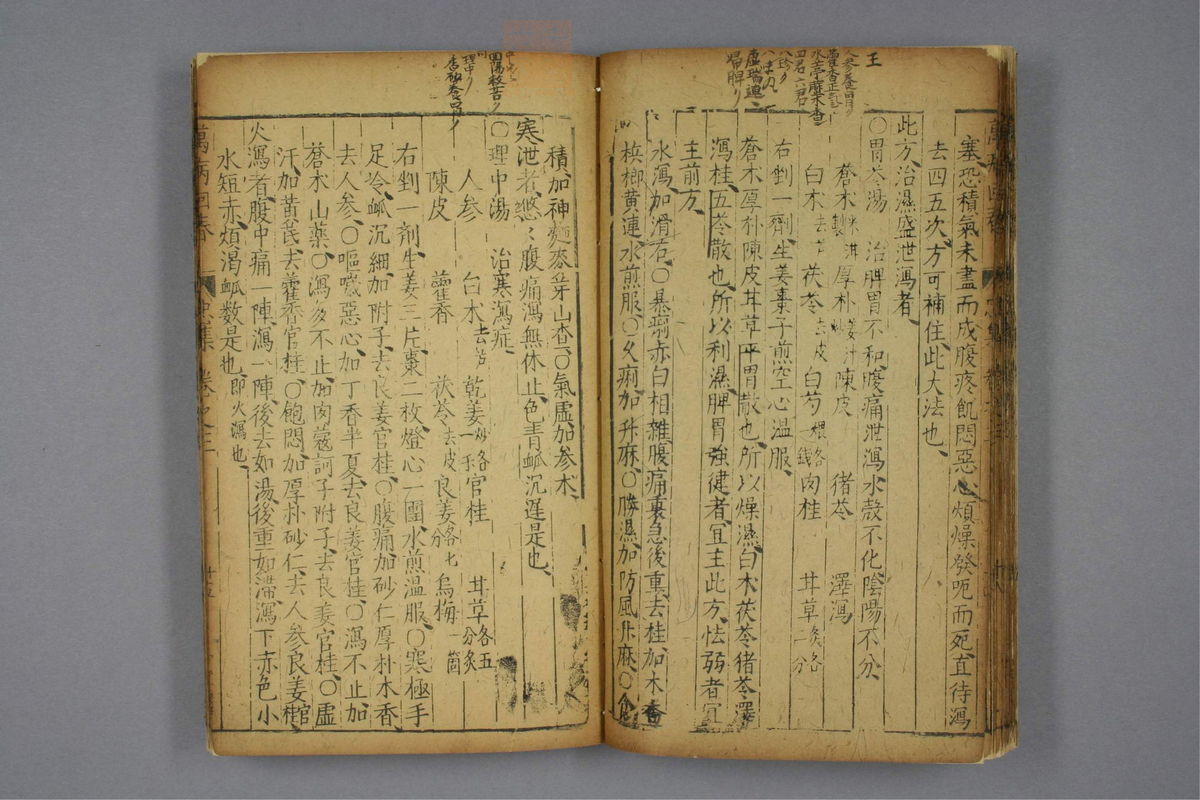 塞恐積氣未盡而成腹疼飢悶惡心煩燥發呃而死宜待瀉
去四五次方可補住此大法也
此方治濕盛泄瀉者
○胃苓湯 治脾胃不和腹痛泄瀉水殼不化陰陽不分
蒼朮 米泔製 厚朴 姜汁炒 陳皮 猪苓 澤瀉
白朮 去芦 茯苓 去皮 白芍 煨各一錢 肉桂 甘草 炙各二分
右剉一劑生姜棗子煎空心温服
蒼朮厚朴陳皮甘草平胃散也所以燥濕白朮茯苓猪苓澤
瀉桂五苓散也所以利濕脾胃強健者宜主此方怯弱者宜
主前方
水瀉加滑石○暴痢赤白相雜腹痛裏急後重去桂加木香
檳榔黄連水煎服○久痢加升麻○勝濕加防風升麻○食
積加神麯麥芽山查○氣虛加参朮
寒泄者悠々腹痛瀉無休止色青脉沉遲是也
○理中湯 治寒瀉症
人参 白朮 去芦 乾姜 炒各一錢 官桂 甘草 炙各五分
陳皮 藿香 茯苓 去皮 良姜 各七分 烏梅 一箇
右剉一剤生姜三片棗二枚燈心一團水煎温服○寒極手
足冷脉沉細加附子去良姜官桂○腹痛加砂仁厚朴木香
去人参○嘔噦惡心加丁香半夏去良姜官桂○瀉不止加
蒼朮山藥○瀉多不止加肉蔻訶子附子去良姜官桂○虛
汗加黄芪去藿香官桂○飽悶加厚朴砂仁去人参良姜官桂
火瀉者腹中痛一陣瀉一陣後去如湯後重如滯瀉下赤色小
水短赤煩渴脉数是也即火瀉也